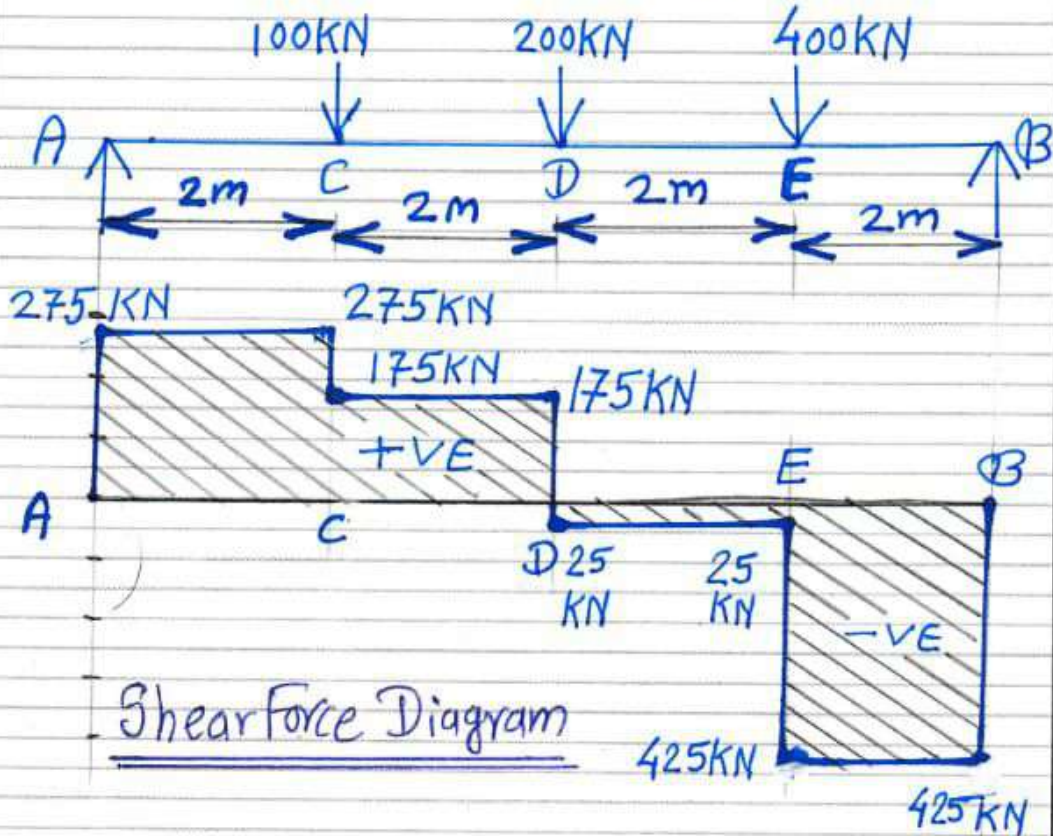 100KN 200KN 400KN
A B
C D E
2m 2m 2m 2m
275 KN 275KN
175KN 175KN
+VE
E B
A C
D 25 KN 25 KN
-VE
Shear Force Diagram
425KN
425KN